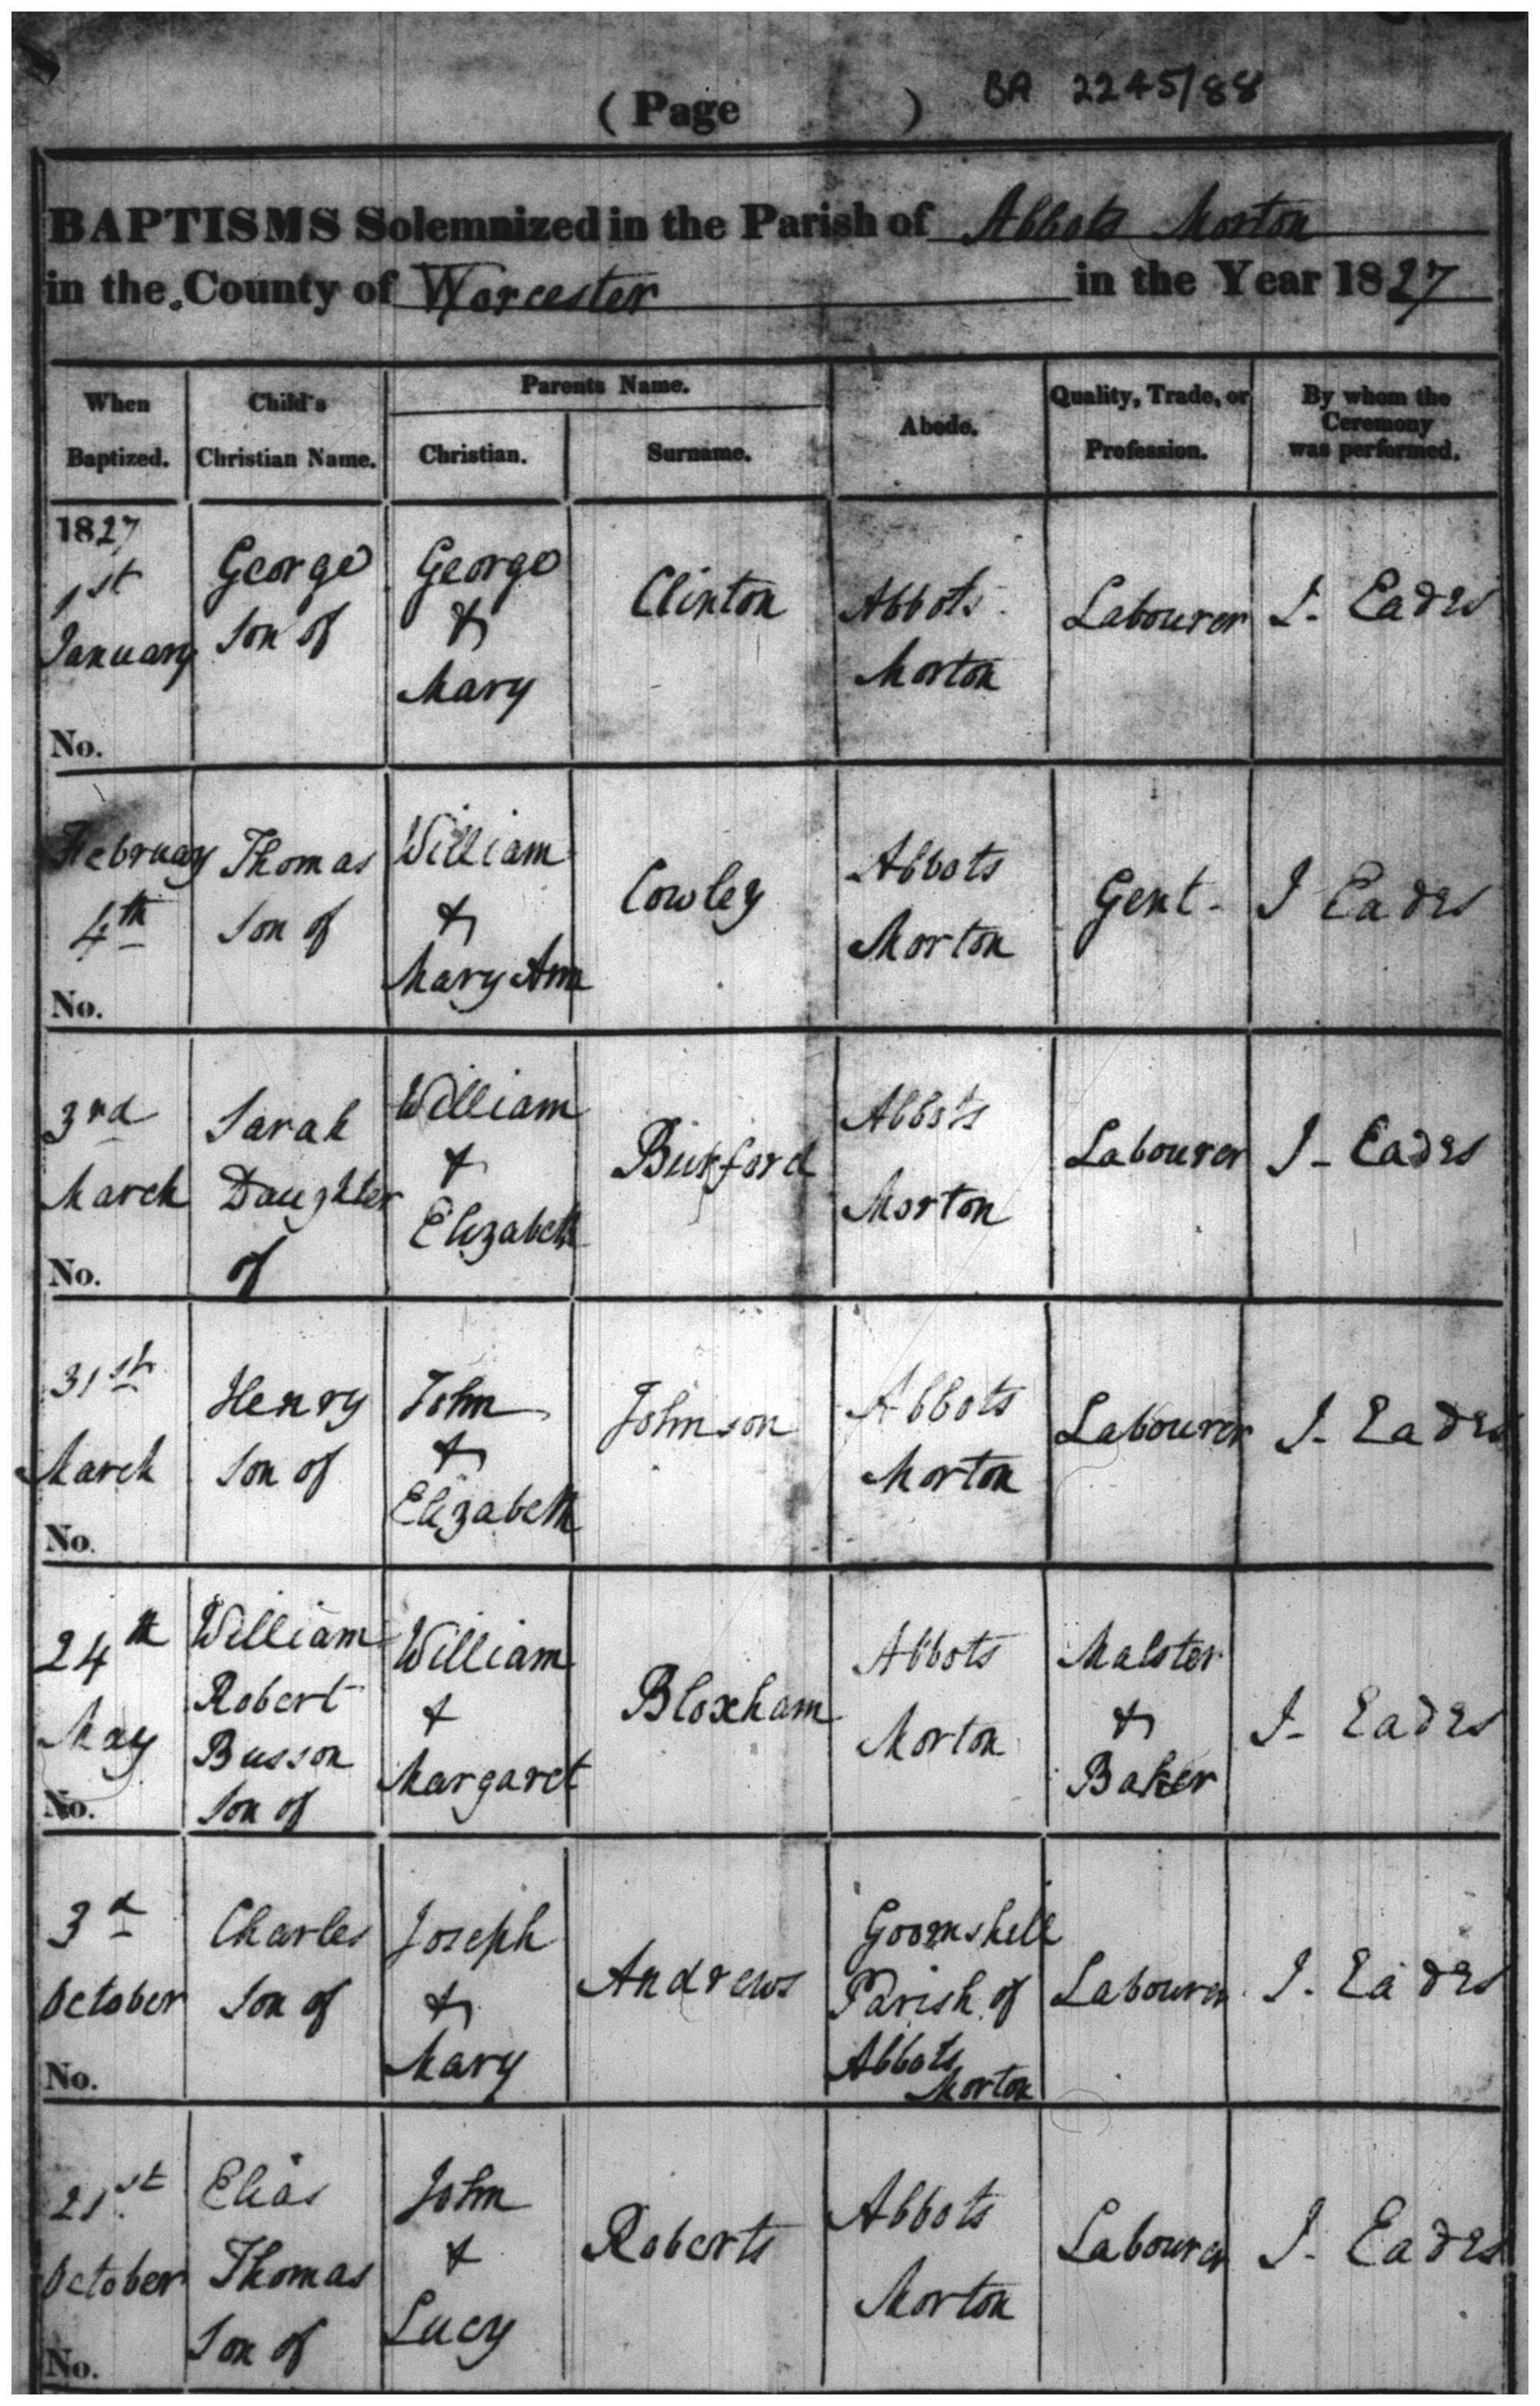 (Page )
BA 2245/88
BAPTISMS Solemnized in the Parish of Abbots Morton
in the County of Worcester in the Year 1827
When
Baptized.
Child's
Christian Name.
Parents Name.
Christian.
Surname.
Abode.
Quality, Trade, or
Profession.
By whom the
Ceremony
was performed.
1827
1st
January
No.
George
Son of
George
&
Mary
Clinton
Abbots
Morton
Labourer
J. Eades
Februay
4th
No.
Thomas
Son of
William
&
Mary Ann
Cowley
Abbots
Morton
Gent.
J Eades
3rd
March
No.
Sarah
Daughter
of
William
&
Elizabeth
Burford
Abbots
Morton
Labourer
J - Eades
31st
March
No.
Henry
Son of
John
&
Elizabeth
Johnson
Abbots
Morton
Labourer
J - Eades
24th
May
No.
William
Robert
Busson
Son of
William
&
Margaret
Bloxham
Abbots
Morton
Malster
&
Baker
J - Eades
3d
October
No.
Charles
Son of
Joseph
&
Mary
Andrews
Goomshill
Parish of
Abbots
Morton
Labourer
J. Eades
21st
October
No.
Elias
Thomas
Son of
John
&
Lucy
Roberts
Abbots
Morton
Labourer
J - Eades